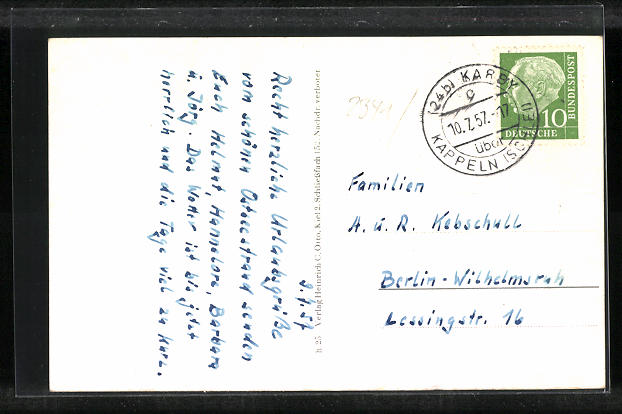 9.7.57
Recht herzliche Urlaubsgrüße
vom schönen Ostseestrand senden
Euch Helmut, Hannelore, Barbara
u. Jörg. Das Wetter ist bis jetzt
herrlich und die Tage viel zu kurz.
h 25 Verlag Heinrich C. Otto, Kiel 2, Schließfach 15c. Nachdr. verboten
(24b) KARBY
a
10.7.57.-17
über
KAPPELN (SCHLEI)
DEUTSCHE
BUNDESPOST
10
Familien
A. u. R. Kebschull
Berlin-Wilhelmsruh
Lessingstr. 16